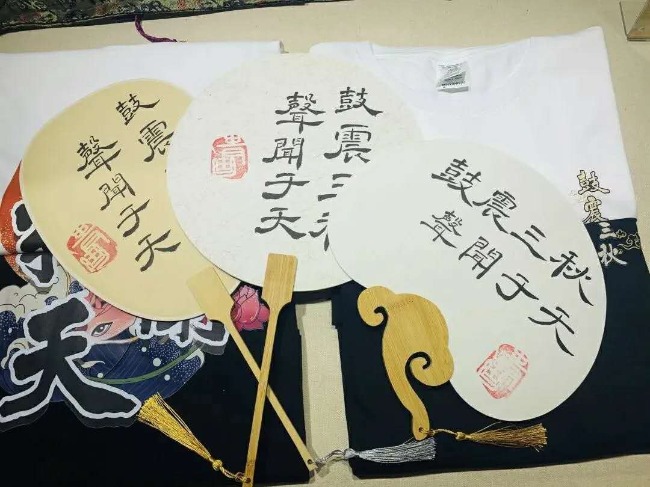 鼓震
聲聞于天
鼓震三
聲聞于天
鼓震三秋
聲聞于天
鼓震三秋
天